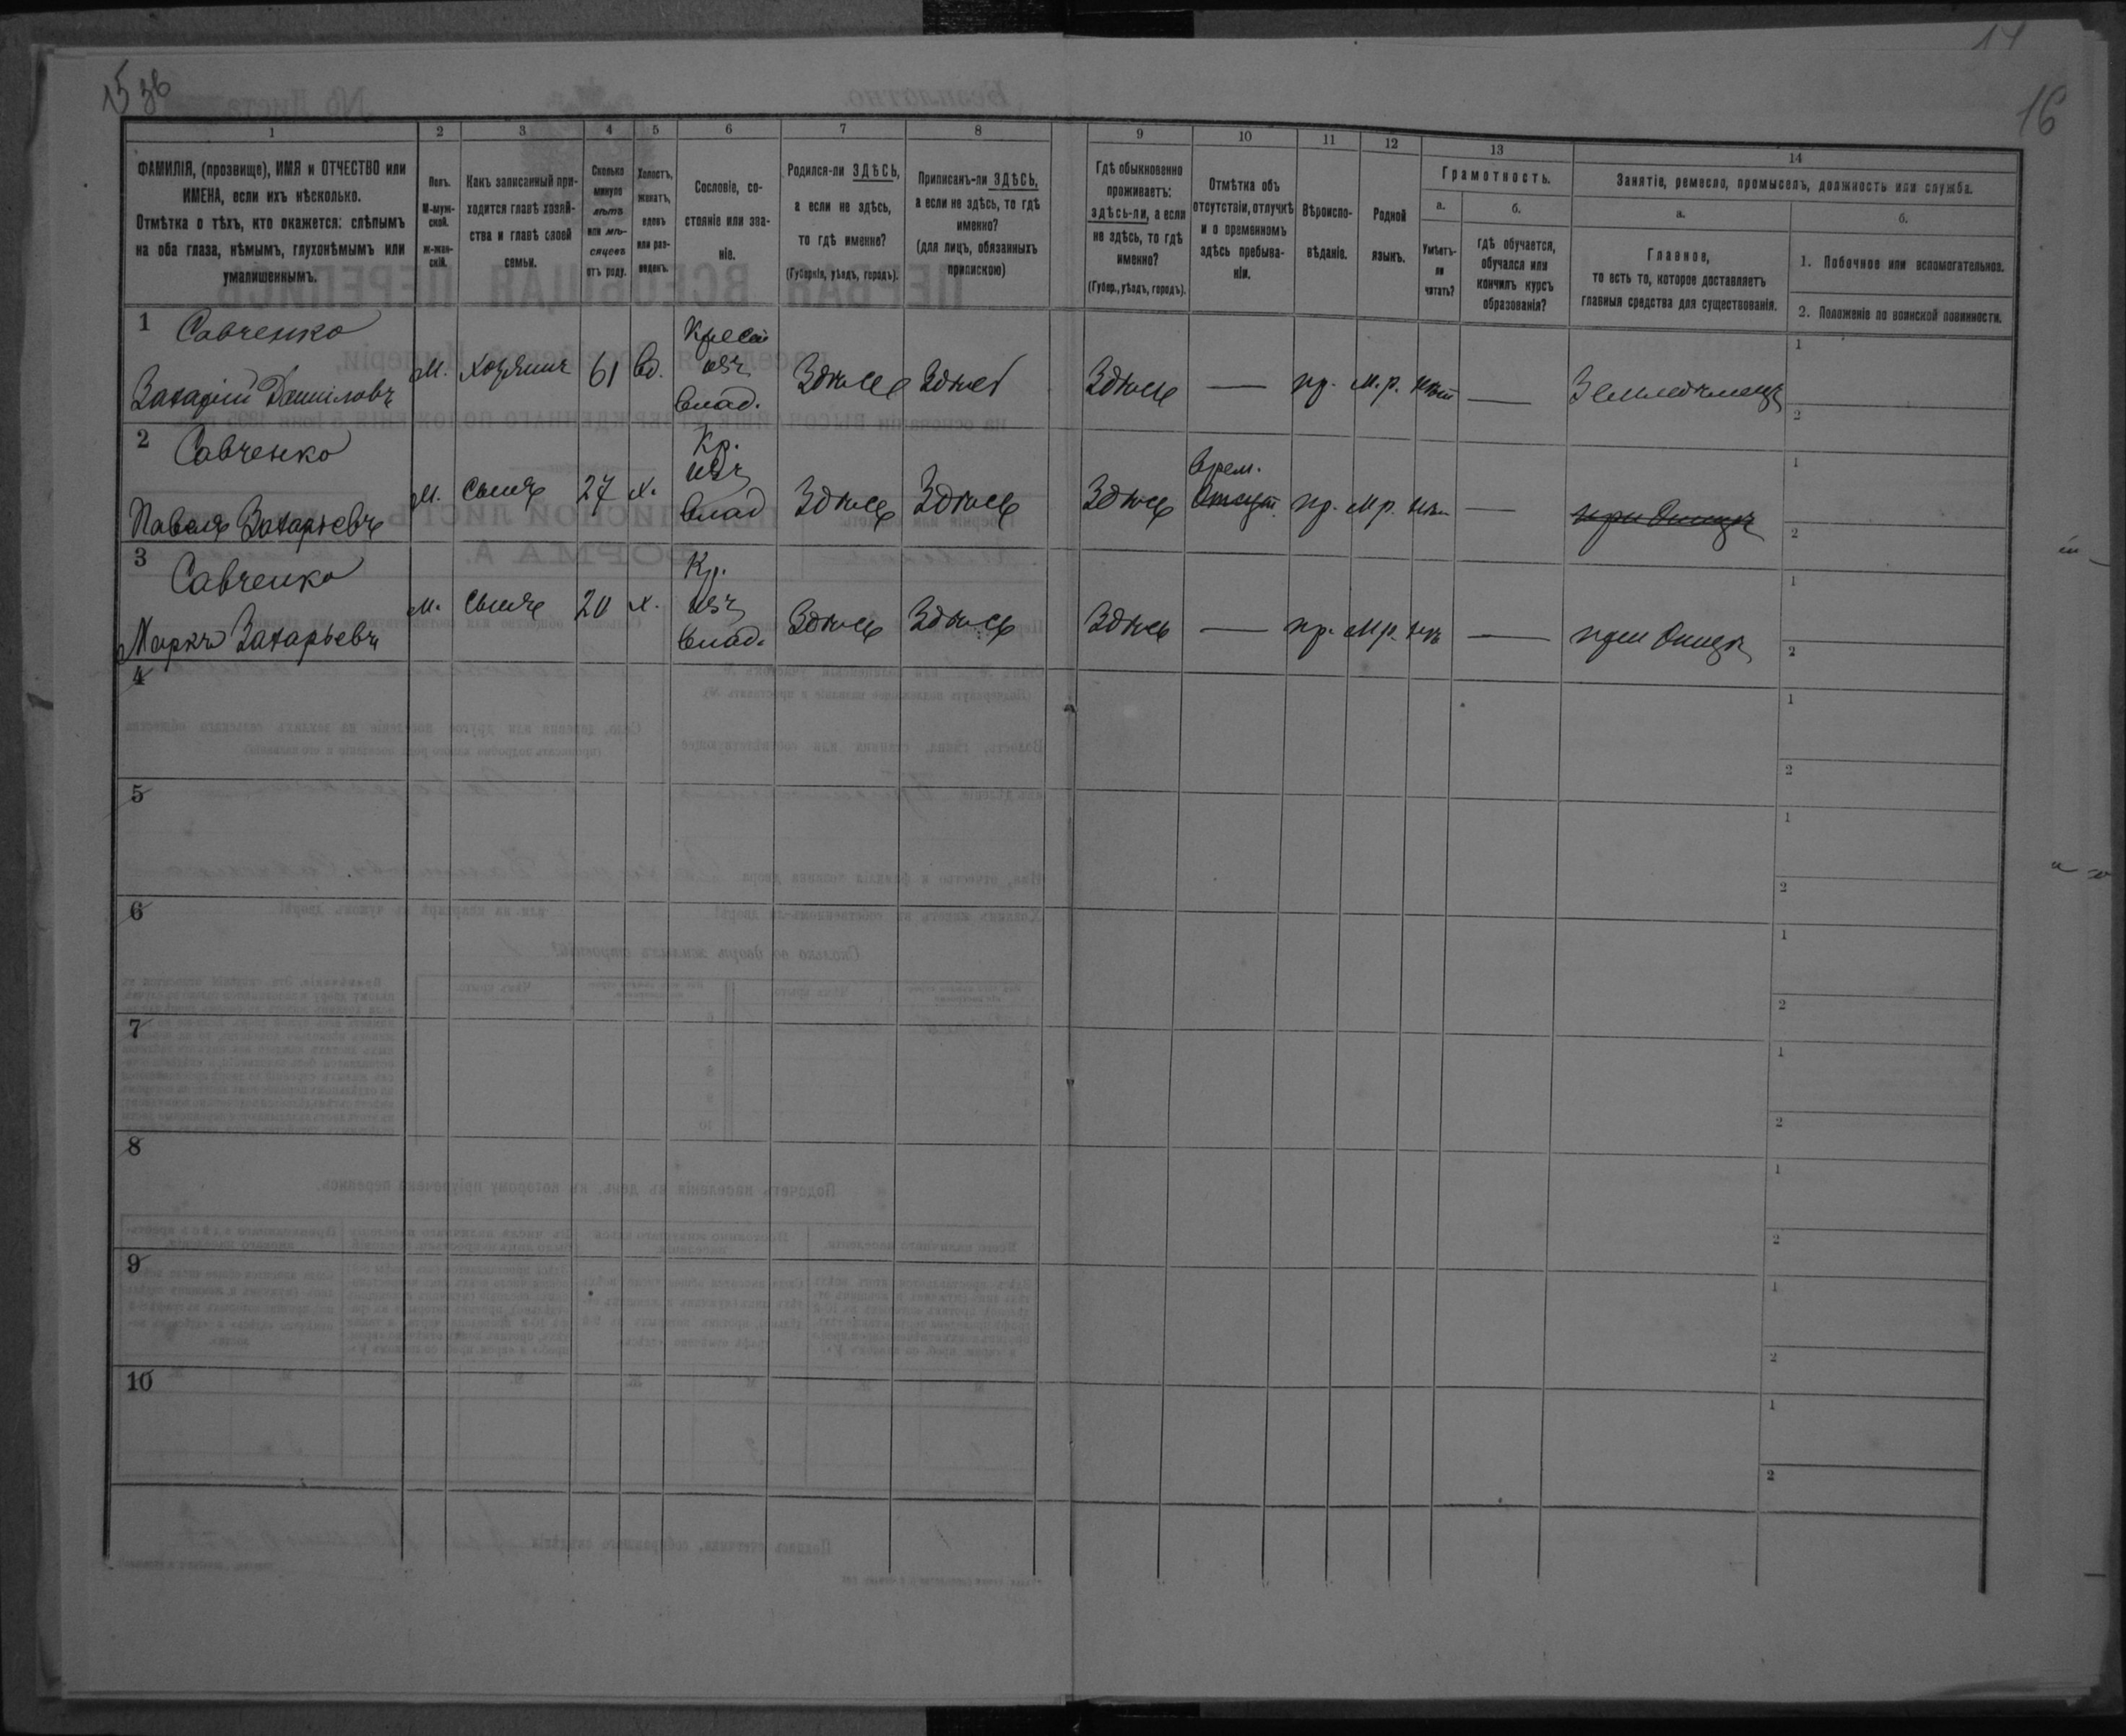 15 зв
14
16
1 2 3 4 5 6 7 8 9 10 11 12 13 14
ФАМИЛІЯ, (прозвище), ИМЯ и ОТЧЕСТВО или
ИМЕНА, если ихъ нѣсколько.
Отмѣтка о тѣхъ, кто окажется: слѣпымъ
на оба глаза, нѣмымъ, глухонѣмымъ или
умалишеннымъ.
Полъ.
М-муж-
ской.
ж-жен-
скій.
Какъ записанный при-
ходится главѣ хозяй-
ства и главѣ своей
семьи.
Сколько
минуло
лѣтъ
или мѣ-
сяцевъ
отъ роду.
Холостъ,
женатъ,
вдовъ
или раз-
веденъ.
Сословіе, со-
стояніе или зва-
ніе.
Родился-ли ЗДѢСЬ,
а если не здѣсь,
то гдѣ именно?
(Губернія, уѣздъ, городъ).
Приписанъ-ли ЗДѢСЬ,
а если не здѣсь, то гдѣ
именно?
(для лицъ, обязанныхъ
припискою)
Гдѣ обыкновенно
проживаетъ:
здѣсь-ли, а если
не здѣсь, то гдѣ
именно?
(Губер., уѣздъ, городъ).
Отмѣтка объ
отсутствіи, отлучкѣ
и о временномъ
здѣсь пребыва-
ніи.
Вѣроиспо-
вѣданіе.
Родной
языкъ.
Грамотность.
а.
Умѣетъ-
ли
читать?
б.
гдѣ обучается,
обучался или
кончилъ курсъ
образованія?
Занятіе, ремесло, промыселъ, должность или служба.
а.
Главное,
то есть то, которое доставляетъ
главныя средства для существованія.
б.
1. Побочное или вспомогательное.
2. Положеніе по воинской повинности.
1 Савченко
Захарій Даниловъ
М. хозяинъ 61 вд.
Крест.
изъ
влад.
Здѣсь Здѣсь Здѣсь — пр. м.р. нѣт — Земледѣлецъ
1
2
2 Савченко
Павелъ Захарьевъ
М. сынъ 27 х.
Кр.
изъ
влад
Здѣсь Здѣсь Здѣсь
врем.
Отсут. пр. мр. нѣт — при Отцѣ
1
2
3 Савченко
Маркъ Захарьевъ
м. сынъ 20 х.
Кр.
изъ
влад.
Здѣсь Здѣсь Здѣсь — пр. мр. нѣ — при Отцѣ
1
2
4
1
2
5
1
2
6
1
2
7
1
2
8
1
2
9
1
2
10
1
2